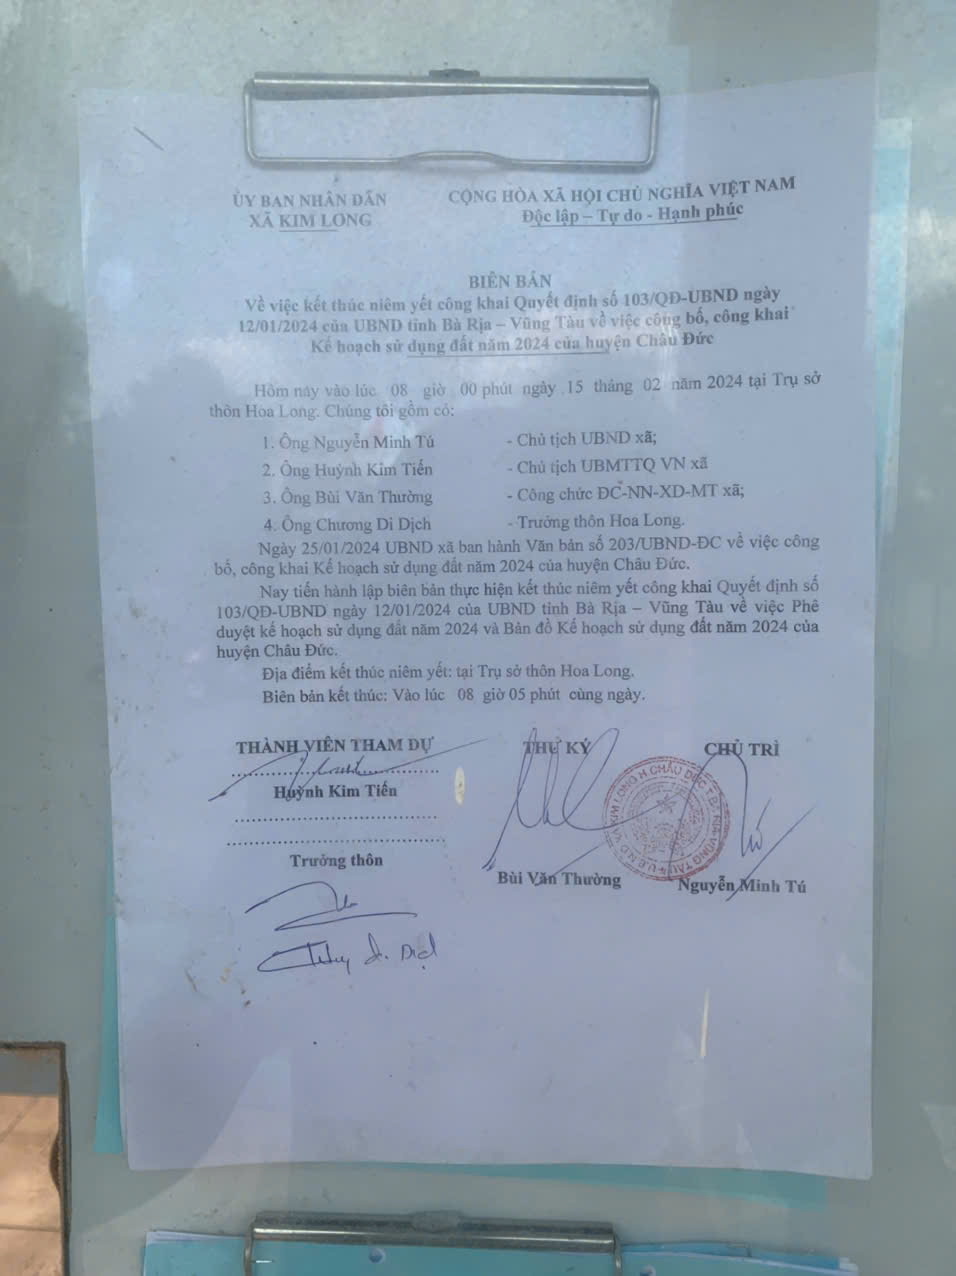 ỦY BAN NHÂN DÂN
XÃ KIM LONG
CỘNG HÒA XÃ HỘI CHỦ NGHĨA VIỆT NAM
Độc lập – Tự do - Hạnh phúc
BIÊN BẢN
Về việc kết thúc niêm yết công khai Quyết định số 103/QĐ-UBND ngày
12/01/2024 của UBND tỉnh Bà Rịa – Vũng Tàu về việc công bố, công khai
Kế hoạch sử dụng đất năm 2024 của huyện Châu Đức
Hôm nay vào lúc 08 giờ 00 phút ngày 15 tháng 02 năm 2024 tại Trụ sở
thôn Hoa Long. Chúng tôi gồm có:
1. Ông Nguyễn Minh Tú - Chủ tịch UBND xã;
2. Ông Huỳnh Kim Tiến - Chủ tịch UBMTTQ VN xã
3. Ông Bùi Văn Thường - Công chức ĐC-NN-XD-MT xã;
4. Ông Chương Di Dịch - Trưởng thôn Hoa Long.
Ngày 25/01/2024 UBND xã ban hành Văn bản số 203/UBND-ĐC về việc công
bố, công khai Kế hoạch sử dụng đất năm 2024 của huyện Châu Đức.
Nay tiến hành lập biên bản thực hiện kết thúc niêm yết công khai Quyết định số
103/QĐ-UBND ngày 12/01/2024 của UBND tỉnh Bà Rịa – Vũng Tàu về việc Phê
duyệt kế hoạch sử dụng đất năm 2024 và Bản đồ Kế hoạch sử dụng đất năm 2024 của
huyện Châu Đức.
Địa điểm kết thúc niêm yết: tại Trụ sở thôn Hoa Long.
Biên bản kết thúc: Vào lúc 08 giờ 05 phút cùng ngày.
THÀNH VIÊN THAM DỰ THƯ KÝ CHỦ TRÌ
Huỳnh Kim Tiến
Trưởng thôn
Bùi Văn Thường Nguyễn Minh Tú
U.B.N.D XÃ KIM LONG H. CHÂU ĐỨC T. BÀ RỊA-VŨNG TÀU